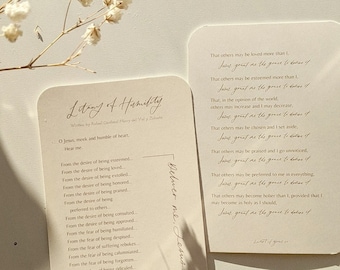 Litany of Humility
O Jesus, meek and humble of heart,
Hear me.
From the desire of being esteemed...
From the desire of being loved...
From the desire of being extolled...
From the desire of being honored...
From the desire of being praised...
From the desire of being
preferred to others...
From the desire of being consulted...
From the desire of being approved...
From the fear of being humiliated...
From the fear of being despised...
From the fear of suffering rebukes...
From the fear of being calumniated...
From the fear of being forgotten...
Deliver me, Jesus
That others may be loved more than I,
Jesus, grant me the grace to desire it
That others may be esteemed more than I,
Jesus, grant me the grace to desire it
That, in the opinion of the world,
others may increase and I may decrease,
Jesus, grant me the grace to desire it
That others may be chosen and I set aside,
Jesus, grant me the grace to desire it
That others may be praised and I go unnoticed,
Jesus, grant me the grace to desire it
That others may be preferred to me in everything,
Jesus, grant me the grace to desire it
That others may become holier than I, provided that I
may become as holy as I should,
Jesus, grant me the grace to desire it